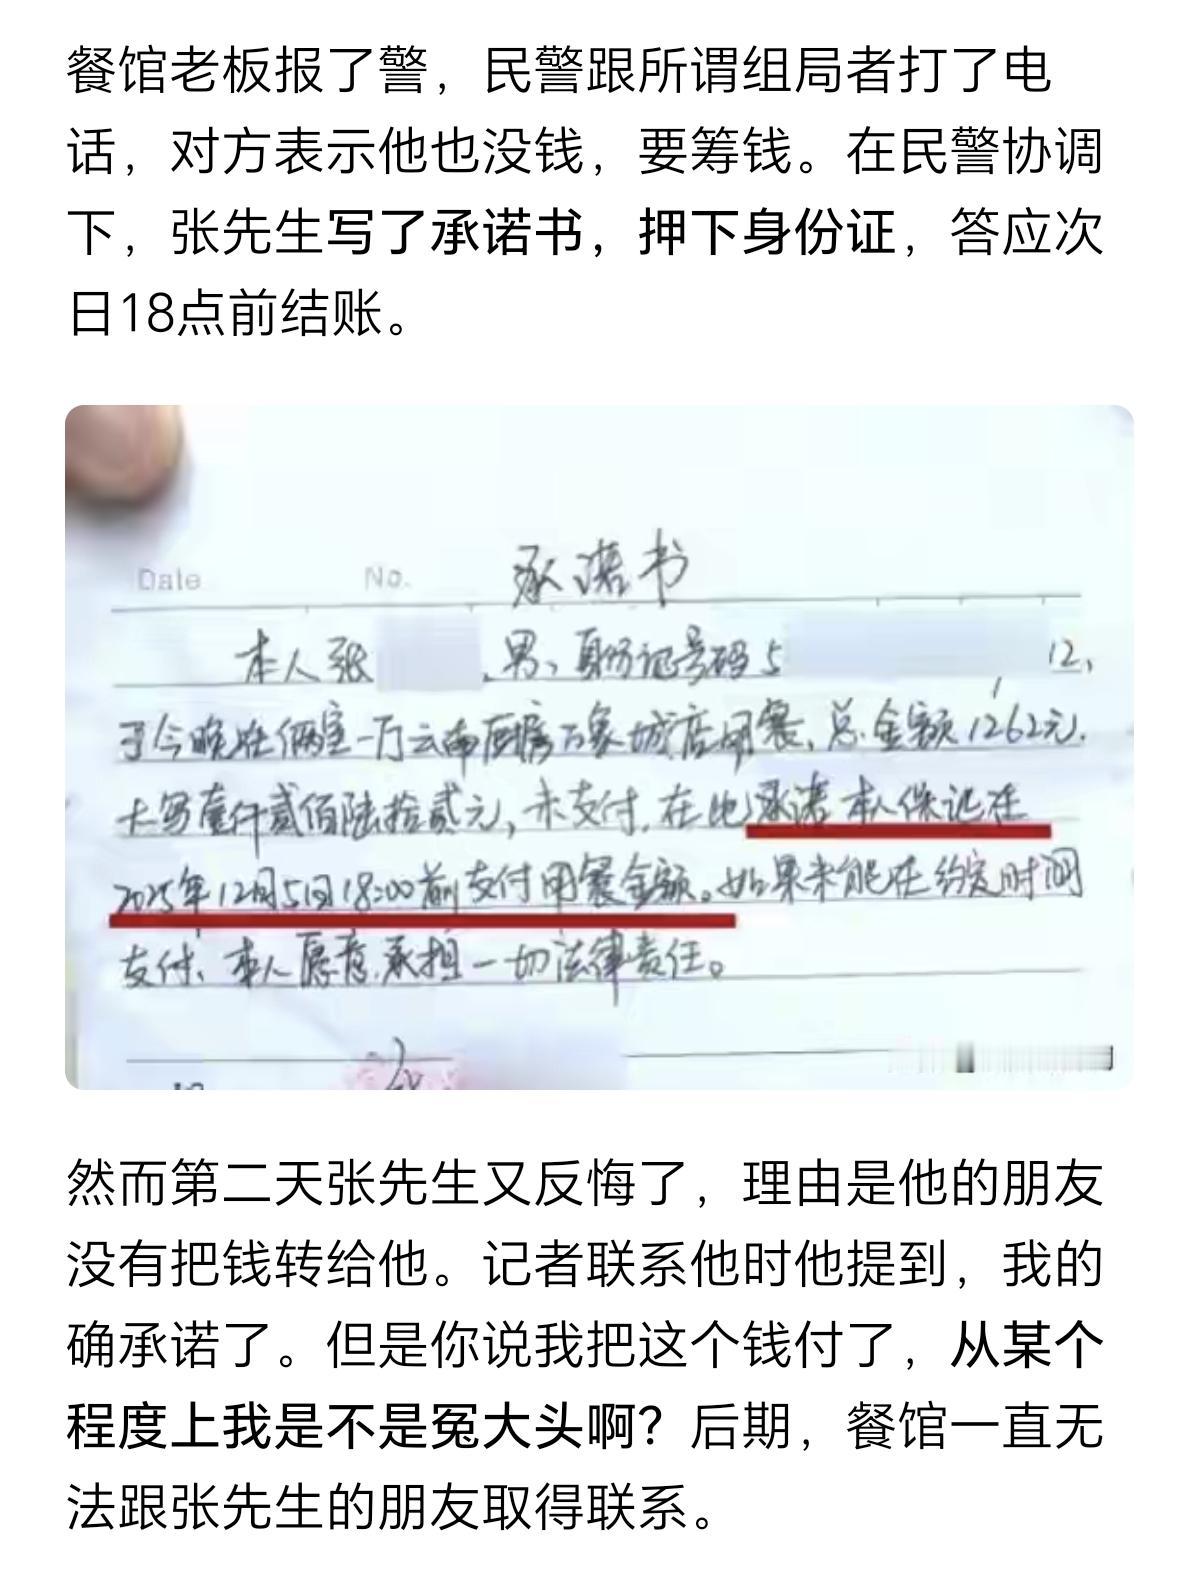 餐馆老板报了警，民警跟所谓组局者打了电
话，对方表示他也没钱，要筹钱。在民警协调
下，张先生写了承诺书，押下身份证，答应次
日18点前结账。
Date No. 承诺书
本人张 ，男、身份证号码5 12，
于今晚在俩室一厅云南厨房万象城店用餐、总金额1262元，
大写壹仟贰佰陆拾贰元，未支付，在此承诺本人保证在
2025年12月5日18:00前支付用餐金额。如果未能在约定时间
支付、本人愿意承担一切法律责任。
然而第二天张先生又反悔了，理由是他的朋友
没有把钱转给他。记者联系他时他提到，我的
确承诺了。但是你说我把这个钱付了，从某个
程度上我是不是冤大头啊？后期，餐馆一直无
法跟张先生的朋友取得联系。